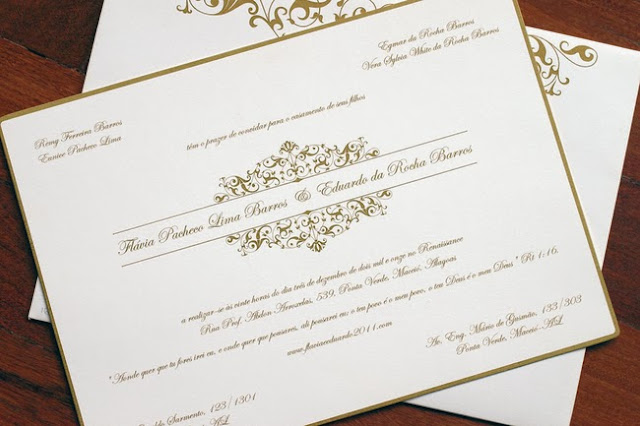 Egmar da Rocha Barros
Vera Sylvia White da Rocha Barros
Remy Ferreira Barros
Eunice Pacheco Lima
têm o prazer de convidar para o casamento de seus filhos
Flávia Pacheco Lima Barros & Eduardo da Rocha Barros
a realizar-se às vinte horas do dia três de dezembro de dois mil e onze no Renaissance
Rua Prof. Abdon Arroxelas, 539, Ponta Verde, Maceió, Alagoas
"Aonde quer que tu fores irei eu, e onde quer que pousares, ali pousarei eu; o teu povo é o meu povo, o teu Deus é o meu Deus" Rt 1:16.
www.flaviaeeduardo2011.com
Av. Eng. Mário de Gusmão, 133/303
Ponta Verde, Maceió-AL
Sarmento, 123/1301